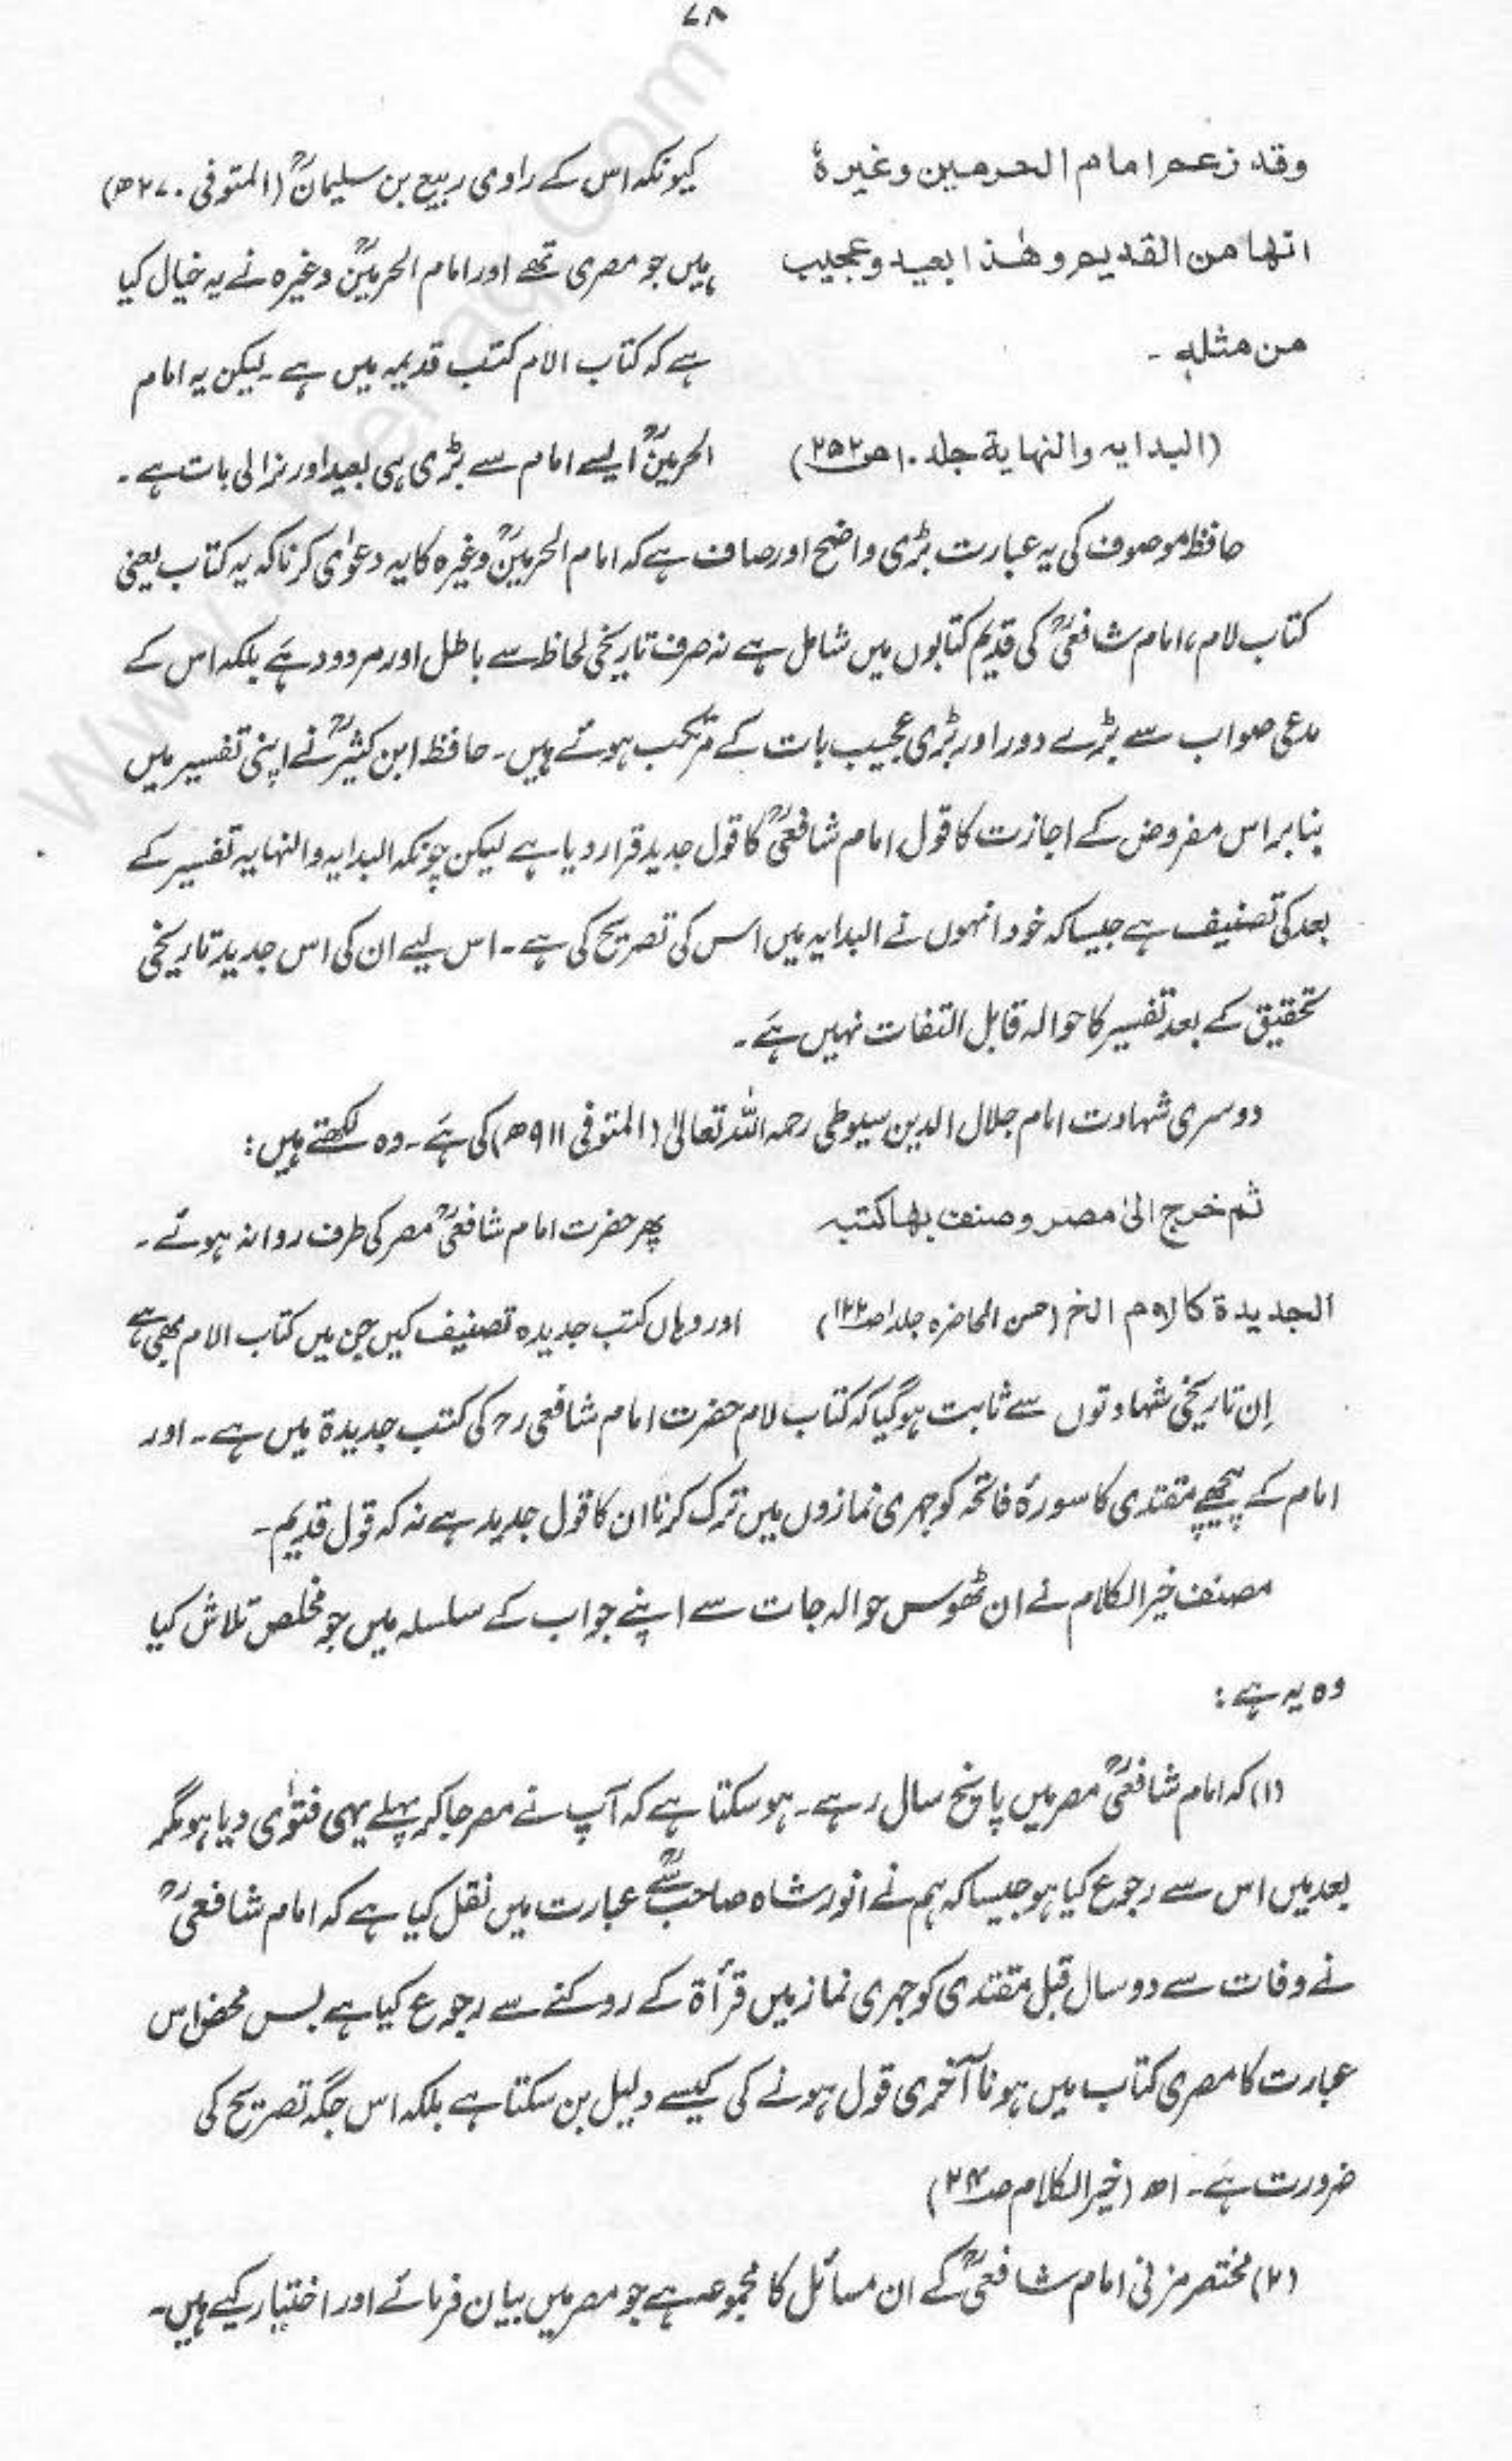 ۷۸
وقد زعم امام الحرمین وغیرہٗ کیونکہ اس کے راوی ربیع بن سلیمانؒ (المتوفی ۲۷۰ھ)
انھا من القدیم وھٰذا بعید وعجیب ہیں جو مصری تھے اور امام الحرمینؒ وغیرہ نے یہ خیال کیا
من مثلہٖ ۔ ہے کہ کتاب الام کتب قدیمہ میں ہے۔ لیکن یہ امام
(البدایہ والنہایة جلد ۱۰ ص ۲۵۲) الحرمینؒ ایسے امام سے بڑی ہی بعید اور نرالی بات ہے۔
حافظ موصوف کی یہ عبارت بڑی واضح اور صاف ہے کہ امام الحرمینؒ وغیرہ کا یہ دعوٰی کرنا کہ یہ کتاب یعنی
کتاب لام، امام شافعیؒ کی قدیم کتابوں میں شامل ہے نہ صرف تاریخی لحاظ سے باطل اور مردود ہَے بلکہ اس کے
مدعی صواب سے بڑے دور اور بڑی عجیب بات کے مرتکب ہوئے ہیں۔ حافظ ابن کثیرؒ نے اپنی تفسیر میں
بنا بر اس مفروض کے اجازت کا قول امام شافعیؒ کا قول جدید قرار دیا ہے لیکن چونکہ البدایہ والنہایہ تفسیر کے
بعد کی تصنیف ہے جیسا کہ خود انہوں نے البدایہ میں اس کی تصریح کی ہے۔ اس لیے ان کی اس جدید تاریخی
تحقیق کے بعد تفسیر کا حوالہ قابل التفات نہیں ہَے۔
دوسری شہادت امام جلال الدین سیوطی رحمہ اللہ تعالیٰ (المتوفی ۹۱۱ھ) کی ہَے۔ وہ لکھتے ہیں:
ثم خرج الیٰ مصر وصنف بھا کتبہ پھر حضرت امام شافعیؒ مصر کی طرف روانہ ہوئے۔
الجدیدة کالام الخ (حسن المحاضرہ جلد۱ ص۱۲۲) اور وہاں کتب جدیدہ تصنیف کیں جن میں کتاب الام بھی ہے
اِن تاریخی شہادتوں سے ثابت ہوگیا کہ کتاب لام حضرت امام شافعی رح کی کتب جدیدة میں ہے۔ اور
امام کے پیچھے مقتدی کا سورۂ فاتحہ کو جہری نمازوں میں ترک کرنا ان کا قول جدید ہے نہ کہ قول قدیم۔
مصنف خیر الکلام نے ان ٹھوس حوالہ جات سے اپنے جواب کے سلسلہ میں جو مخلص تلاش کیا
وہ یہ ہے:
(۱) کہ امام شافعیؒ مصر میں پانچ سال رہے۔ ہو سکتا ہے کہ آپ نے مصر جا کر پہلے یہی فتوٰی دیا ہو مگر
بعد میں اس سے رجوع کیا ہو جیسا کہ ہم نے انور شاہ صاحبؒ سے عبارت میں نقل کیا ہے کہ امام شافعیؒ
نے وفات سے دو سال قبل مقتدی کو جہری نماز میں قرأة کے روکنے سے رجوع کیا ہے بس محض اس
عبارت کا مصری کتاب میں ہونا آخری قول ہونے کی کیسے دلیل بن سکتا ہے بلکہ اس جگہ تصریح کی
ضرورت ہَے۔ اھ (خیر الکلام صـ۲۴)
(۲) مختصر مزنی امام شافعیؒ کے ان مسائل کا مجموعہ ہے جو مصر میں بیان فرمائے اور اختیار کیے ہیں۔